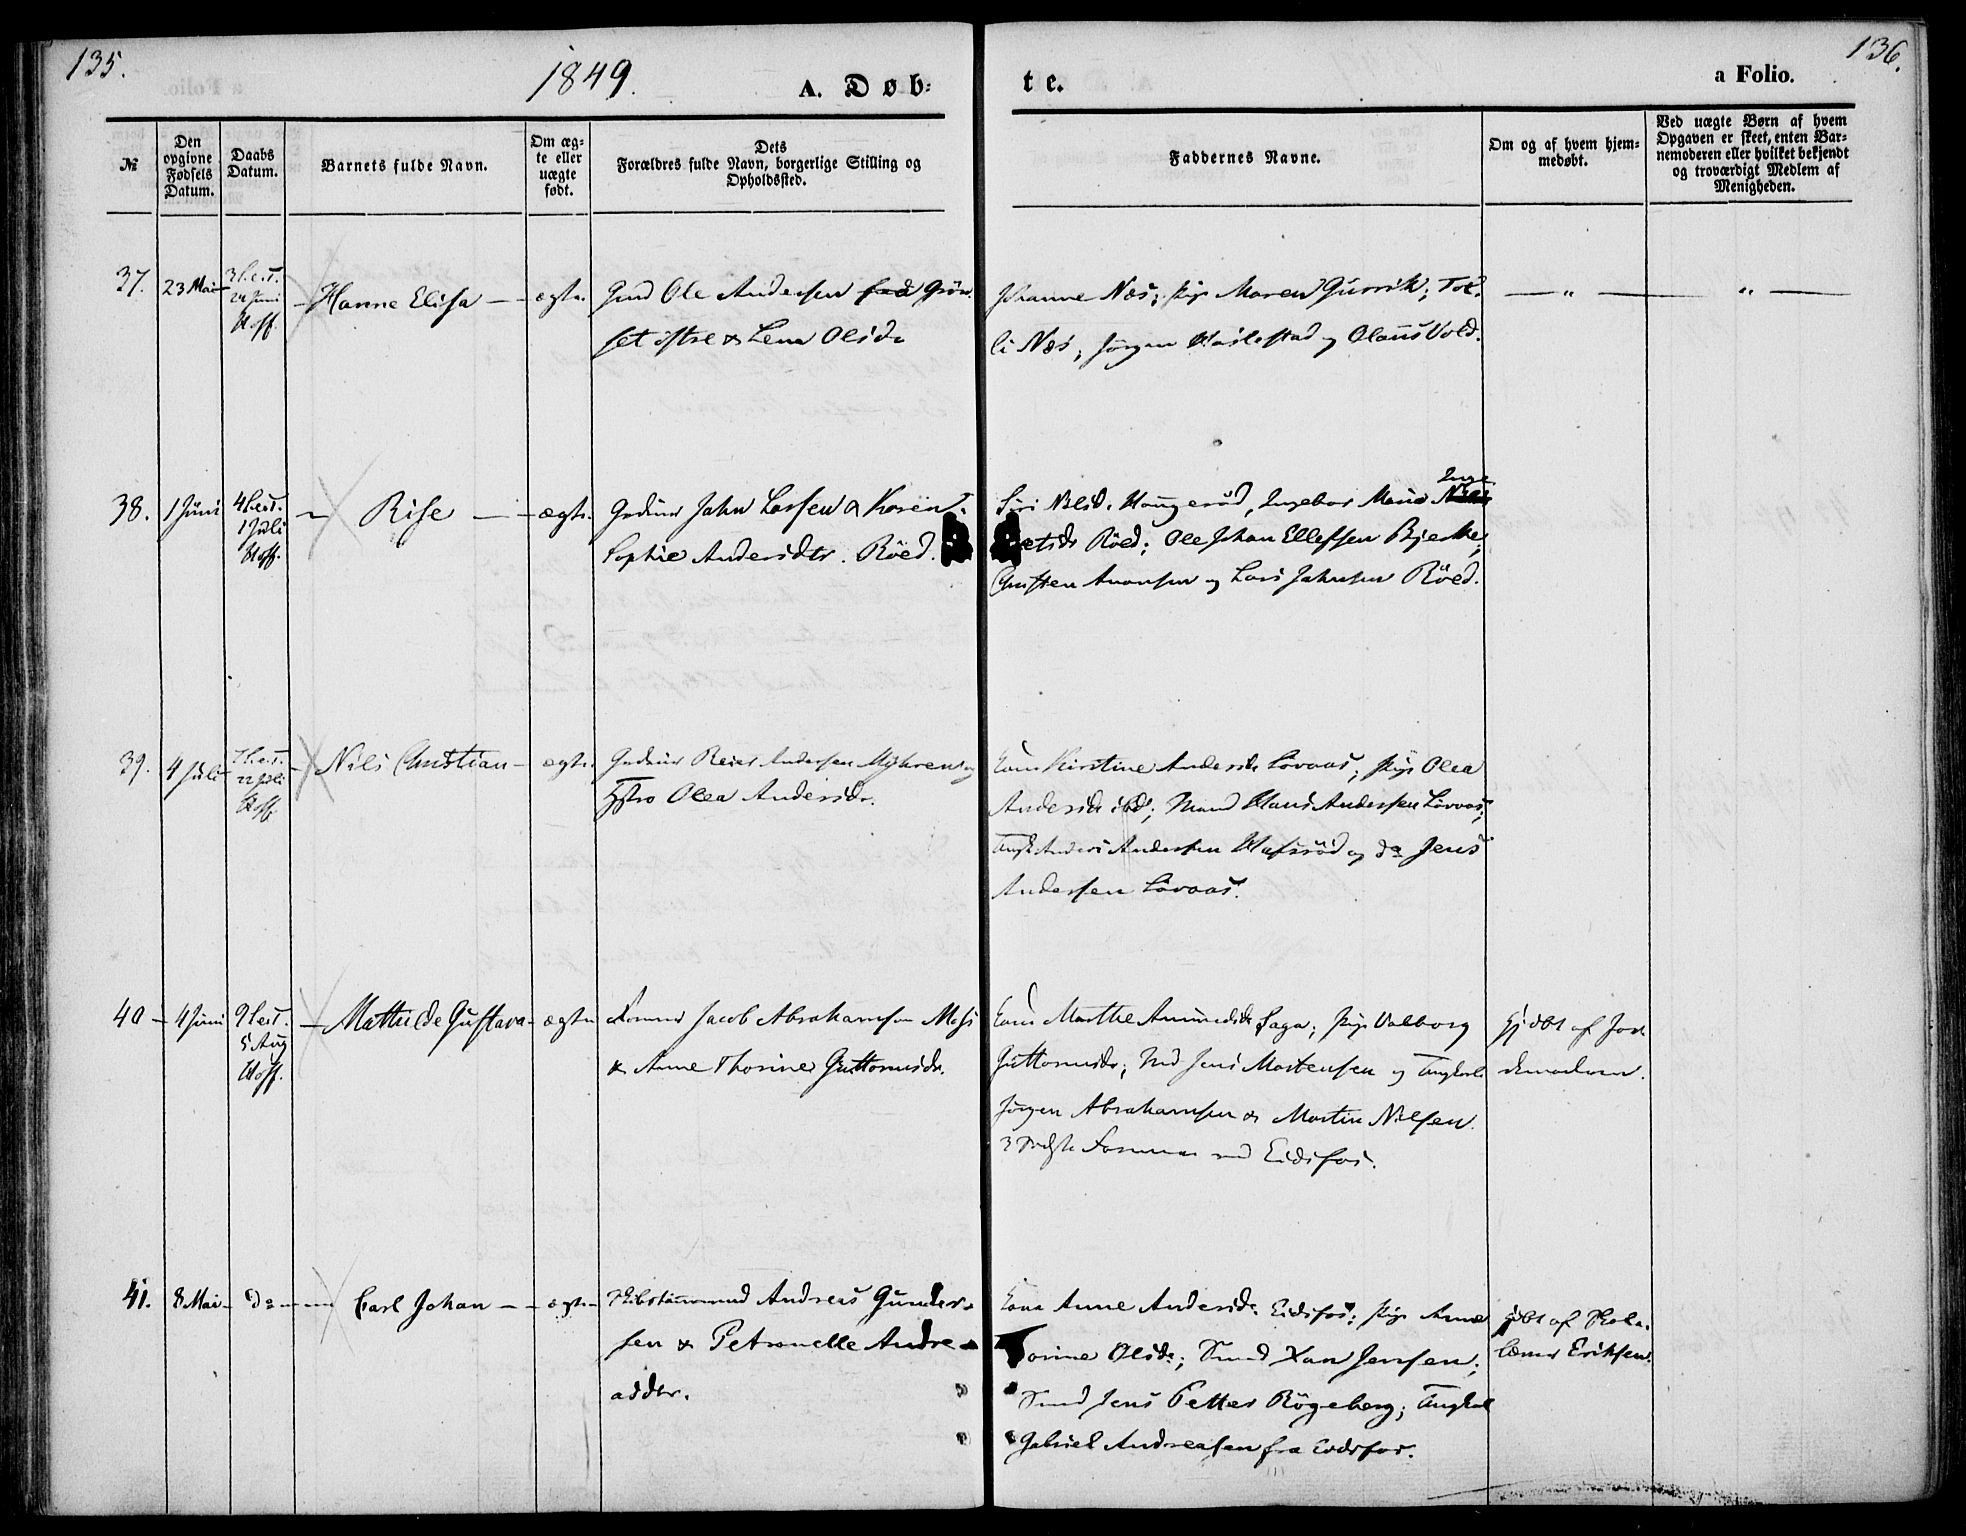 135.
1849.
A. Døb-
te.
a Folio.
136.
№
Den opgivne Fødsels Datum.
Daabs Datum.
Barnets fulde Navn.
Om ægte eller uægte født.
Dets Forældres fulde Navn, borgerlige Stilling og Opholdssted.
Faddernes Navne.
Om og af hvem hjemmedøbt.
Ved uægte Børn af hvem Opgaven er skeet, enten Barnemoderen eller hvilket bekjendt og troværdigt Medlem af Menigheden.
37. 23 Mai
24 Juni
Hoff.
Hanne Elisa
ægte.
Gmd Ole Andersen Grøn-
set østre & Lena Olsdr
Johanne Næs; Pige Maren Gurrik; Tol-
li Næs; Jörgen Haslestad og Olaus Vold.
— " —
— " —
38. 1 Juni
1 Juli
Hoff.
Rise
ægte.
John Larsen & Karen
Sophie Andersdtr. Röed.
Siri Nilsd. Haugeröd, Ingebor Maria
Inge-
Röed; Ole Johan Ellefsen Bjerke;
Christen Aronsen og Lars Johnsen Röed.
39. 4 Juli
22 Juli
Hoff.
Nils Christian
ægte.
Reier Andersen Myhren og
Hstro Olea Andersdr.
Kone Kirstine Andersdr Lövaas; Pige Olea
Andersdr ibd; Mand Hans Andersen Lövaas;
Anders Andersen Hafsröd og do Jens
Andersen Lövaas.
40 4 Juni
5 Aug
Hoff.
Mathilde Gustava
ægte
Former Jacob Abrahamsen Moss
& Anne Thorine Guttormsdr.
Kone Marthe Amundsdr Saga; Pige Valborg
Guttormsdr; Jens Mortensen og Ungkarle
Jörgen Abrahamsen & Martin Nilsen.
3 sidste Formere ved Eidsfos.
Hj dbt af Jor-
demoderen.
41. 8 Mai
do
Carl Johan
ægte
Andreas Gunder-
sen & Petronelle Andre-
asdtr.
Kone Anne Andersdr. Eidsfos; Pige Anne
Torine Olsdr; Smed Xan Jensen;
Smed Jens Petter Rögeberg; Ungkal
Gabriel Andreasen fra Eidsfos.
dbt af Skole-
lærer Eriksen.